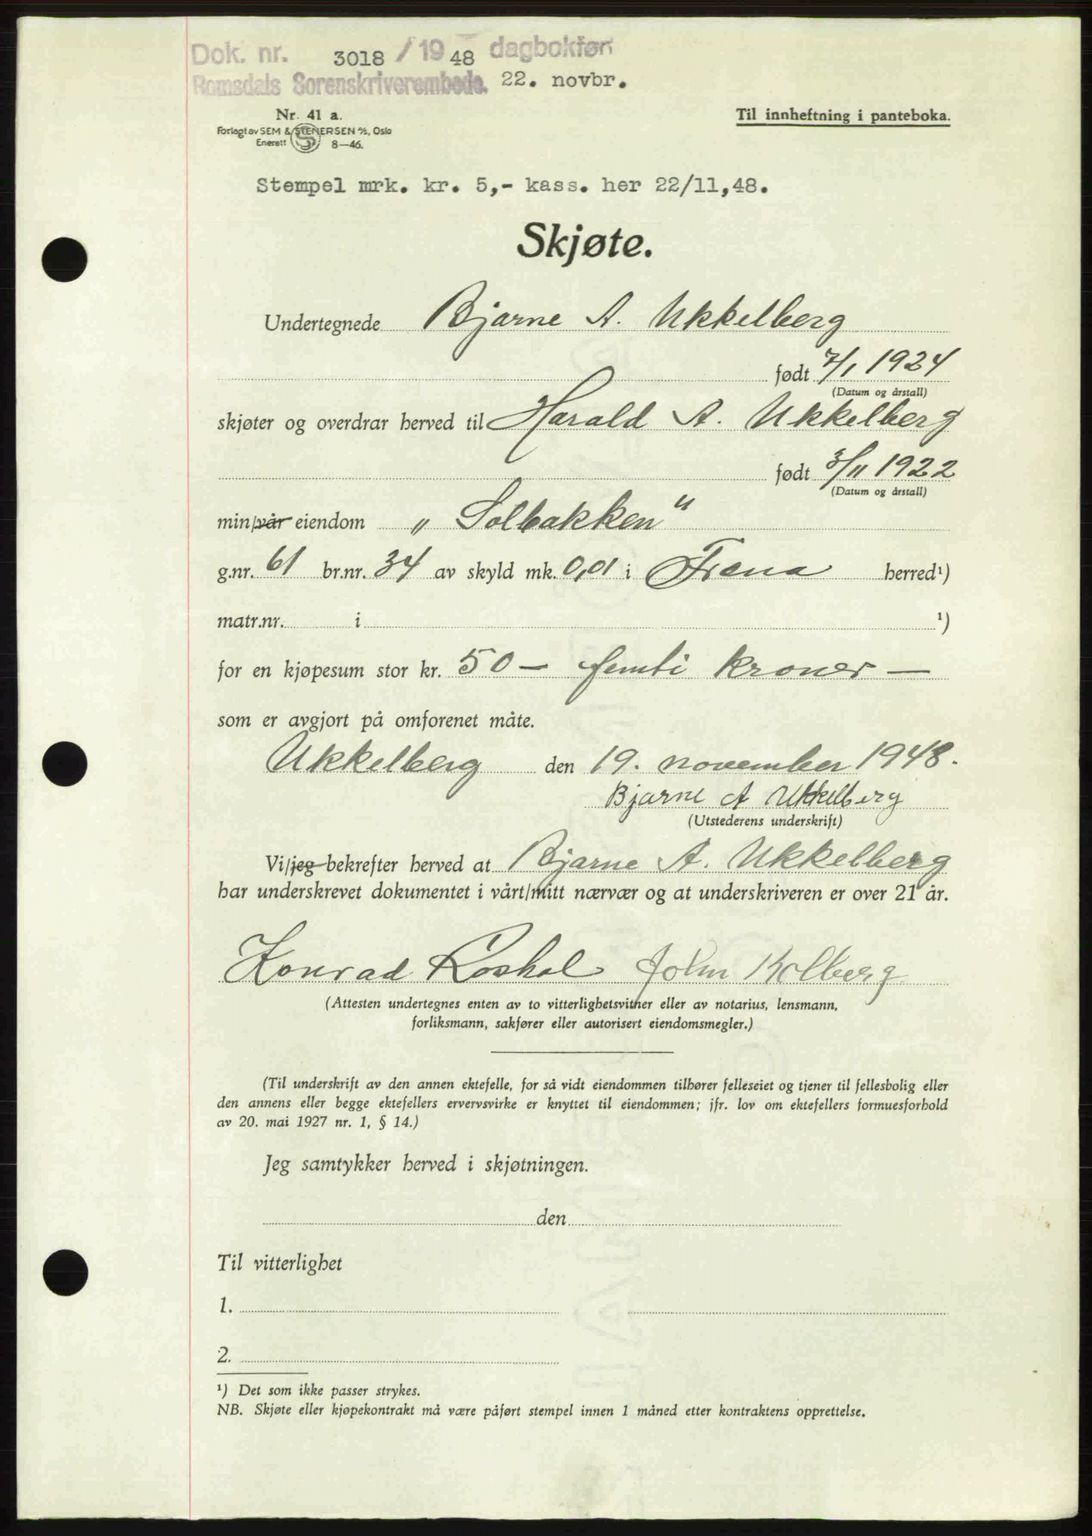 Dok. nr. 3018 / 19 48 dagbokført
Romsdals Sorenskriverembede. 22. novbr.
Nr. 41 a.
Til innheftning i panteboka.
Forlagt av SEM & STENERSEN A/S, Oslo
Enerett S 8—46.
Stempel mrk. kr. 5,- kass. her 22/11,48.
Skjøte.
Undertegnede Bjarne A. Ukkelberg
født 7/1 1924
(Datum og årstall)
skjøter og overdrar herved til Harald A. Ukkelberg
født 3/11 1922
(Datum og årstall)
min/vår eiendom „ Solbakken “
g.nr. 61 br.nr. 34 av skyld mk. 0,01 i Fræna herred¹)
matr.nr. i ¹)
for en kjøpesum stor kr. 50 — femti kroner —
som er avgjort på omforenet måte.
Ukkelberg den 19. november 1948.
Bjarne A Ukkelberg
(Utstederens underskrift)
Vi/jeg bekrefter herved at Bjarne A. Ukkelberg
har underskrevet dokumentet i vårt/mitt nærvær og at underskriveren er over 21 år.
Konrad Roshol John Kolberg
(Attesten undertegnes enten av to vitterlighetsvitner eller av notarius, lensmann,
forliksmann, sakfører eller autorisert eiendomsmegler.)
(Til underskrift av den annen ektefelle, for så vidt eiendommen tilhører felleseiet og tjener til fellesbolig eller
den annens eller begge ektefellers ervervsvirke er knyttet til eiendommen; jfr. lov om ektefellers formuesforhold
av 20. mai 1927 nr. 1, § 14.)
Jeg samtykker herved i skjøtningen.
den
Til vitterlighet
1.
2.
¹) Det som ikke passer strykes.
NB. Skjøte eller kjøpekontrakt må være påført stempel innen 1 måned etter kontraktens opprettelse.